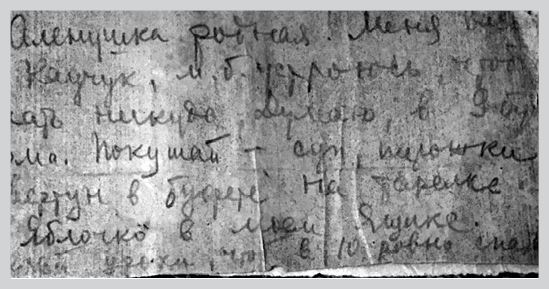 Аленушка родная! Меня
Каучук, м.б. устроюсь, чтоб
никуда. Думаю, в 9
ома. Покушай – суп, пирожки
в буфете на тарелке.
Яблочко в моем ящике.
уроки, что в 10 ровно